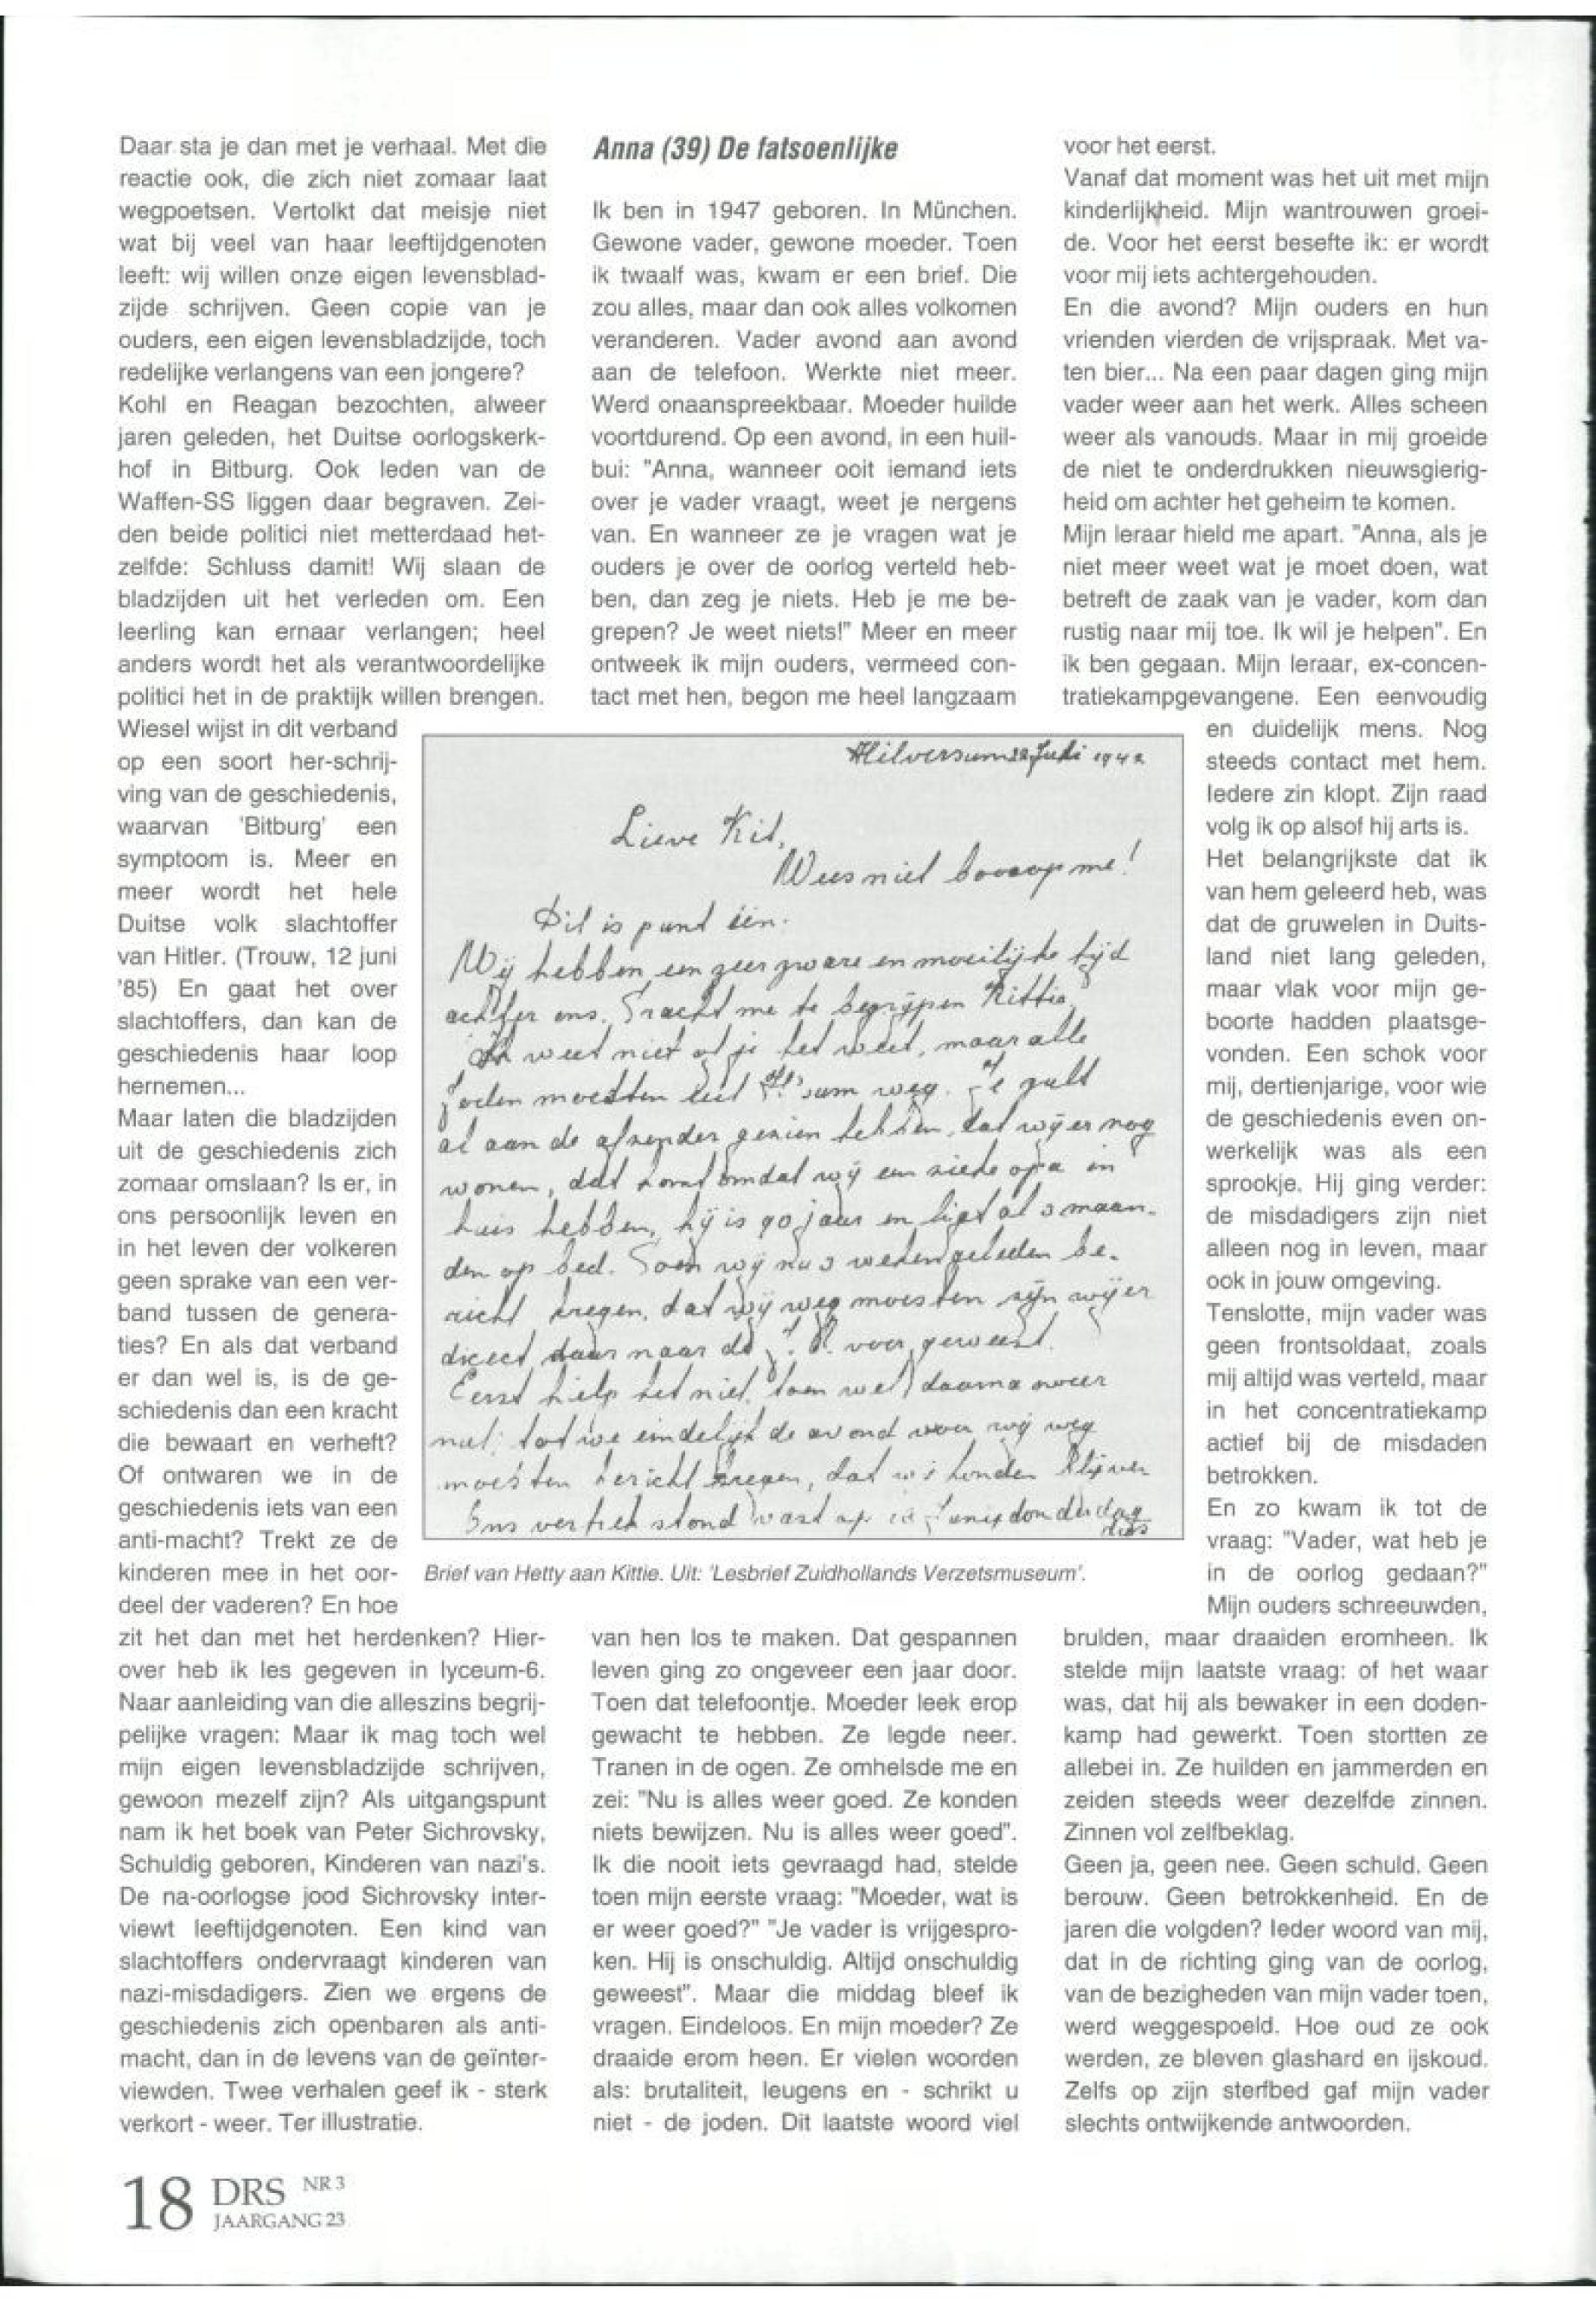 Daar sta je dan met je verhaal. Met die
reactie ook, die zich niet zomaar laat
wegpoetsen. Vertolkt dat meisje niet
wat bij veel van haar leeftijdgenoten
leeft: wij willen onze eigen levensblad-
zijde schrijven. Geen copie van je
ouders, een eigen levensbladzijde, toch
redelijke verlangens van een jongere?
Kohl en Reagan bezochten, alweer
jaren geleden, het Duitse oorlogskerk-
hof in Bitburg. Ook leden van de
Waffen-SS liggen daar begraven. Zei-
den beide politici niet metterdaad het-
zelfde: Schluss damit! Wij slaan de
bladzijden uit het verleden om. Een
leerling kan ernaar verlangen; heel
anders wordt het als verantwoordelijke
politici het in de praktijk willen brengen.
Wiesel wijst in dit verband
op een soort her-schrij-
ving van de geschiedenis,
waarvan 'Bitburg' een
symptoom is. Meer en
meer wordt het hele
Duitse volk slachtoffer
van Hitler. (Trouw, 12 juni
'85) En gaat het over
slachtoffers, dan kan de
geschiedenis haar loop
hernemen...
Maar laten die bladzijden
uit de geschiedenis zich
zomaar omslaan? Is er, in
ons persoonlijk leven en
in het leven der volkeren
geen sprake van een ver-
band tussen de genera-
ties? En als dat verband
er dan wel is, is de ge-
schiedenis dan een kracht
die bewaart en verheft?
Of ontwaren we in de
geschiedenis iets van een
anti-macht? Trekt ze de
kinderen mee in het oor-
deel der vaderen? En hoe
zit het dan met het herdenken? Hier-
over heb ik les gegeven in lyceum-6.
Naar aanleiding van die alleszins begrij-
pelijke vragen: Maar ik mag toch wel
mijn eigen levensbladzijde schrijven,
gewoon mezelf zijn? Als uitgangspunt
nam ik het boek van Peter Sichrovsky,
Schuldig geboren, Kinderen van nazi's.
De na-oorlogse jood Sichrovsky inter-
viewt leeftijdgenoten. Een kind van
slachtoffers ondervraagt kinderen van
nazi-misdadigers. Zien we ergens de
geschiedenis zich openbaren als anti-
macht, dan in de levens van de geïnter-
viewden. Twee verhalen geef ik - sterk
verkort - weer. Ter illustratie.
Anna (39) De fatsoenlijke
Ik ben in 1947 geboren. In München.
Gewone vader, gewone moeder. Toen
ik twaalf was, kwam er een brief. Die
zou alles, maar dan ook alles volkomen
veranderen. Vader avond aan avond
aan de telefoon. Werkte niet meer.
Werd onaanspreekbaar. Moeder huilde
voortdurend. Op een avond, in een huil-
bui: "Anna, wanneer ooit iemand iets
over je vader vraagt, weet je nergens
van. En wanneer ze je vragen wat je
ouders je over de oorlog verteld heb-
ben, dan zeg je niets. Heb je me be-
grepen? Je weet niets!" Meer en meer
ontweek ik mijn ouders, vermeed con-
tact met hen, begon me heel langzaam
Hilversum 22 Juli 1942
Lieve Kit,
Wees niet boos op me!
Dit is punt één.
Wij hebben een zeer zware en moeilijke tijd
achter ons. Tracht me te begrijpen Kittie
Ik weet niet of je het weet, maar alle
Joden moesten uit H'sum weg. Je zult
al aan de afzender gezien hebben, dat wij er nog
wonen, dat komt omdat wij een zieke opa in
huis hebben, hij is 90 jaar en ligt al 3 maan-
den op bed. Toen wij nu 3 weken geleden be-
richt kregen, dat wij weg moesten zijn wij er
direct daar naar de J. R. voor geweest.
Eerst hielp het niet, toen wel, daarna weer
niet; tot we eindelijk de avond voor wij weg
moesten bericht kregen, dat wij konden blijven
Ons vertrek stond vast op donderdag
dus
Brief van Hetty aan Kittie. Uit: 'Lesbrief Zuidhollands Verzetsmuseum'.
van hen los te maken. Dat gespannen
leven ging zo ongeveer een jaar door.
Toen dat telefoontje. Moeder leek erop
gewacht te hebben. Ze legde neer.
Tranen in de ogen. Ze omhelsde me en
zei: "Nu is alles weer goed. Ze konden
niets bewijzen. Nu is alles weer goed".
Ik die nooit iets gevraagd had, stelde
toen mijn eerste vraag: "Moeder, wat is
er weer goed?" "Je vader is vrijgespro-
ken. Hij is onschuldig. Altijd onschuldig
geweest". Maar die middag bleef ik
vragen. Eindeloos. En mijn moeder? Ze
draaide erom heen. Er vielen woorden
als: brutaliteit, leugens en - schrikt u
niet - de joden. Dit laatste woord viel
voor het eerst.
Vanaf dat moment was het uit met mijn
kinderlijkheid. Mijn wantrouwen groei-
de. Voor het eerst besefte ik: er wordt
voor mij iets achtergehouden.
En die avond? Mijn ouders en hun
vrienden vierden de vrijspraak. Met va-
ten bier... Na een paar dagen ging mijn
vader weer aan het werk. Alles scheen
weer als vanouds. Maar in mij groeide
de niet te onderdrukken nieuwsgierig-
heid om achter het geheim te komen.
Mijn leraar hield me apart. "Anna, als je
niet meer weet wat je moet doen, wat
betreft de zaak van je vader, kom dan
rustig naar mij toe. Ik wil je helpen". En
ik ben gegaan. Mijn leraar, ex-concen-
tratiekampgevangene. Een eenvoudig
en duidelijk mens. Nog
steeds contact met hem.
Iedere zin klopt. Zijn raad
volg ik op alsof hij arts is.
Het belangrijkste dat ik
van hem geleerd heb, was
dat de gruwelen in Duits-
land niet lang geleden,
maar vlak voor mijn ge-
boorte hadden plaatsge-
vonden. Een schok voor
mij, dertienjarige, voor wie
de geschiedenis even on-
werkelijk was als een
sprookje. Hij ging verder:
de misdadigers zijn niet
alleen nog in leven, maar
ook in jouw omgeving.
Tenslotte, mijn vader was
geen frontsoldaat, zoals
mij altijd was verteld, maar
in het concentratiekamp
actief bij de misdaden
betrokken.
En zo kwam ik tot de
vraag: "Vader, wat heb je
in de oorlog gedaan?"
Mijn ouders schreeuwden,
brulden, maar draaiden eromheen. Ik
stelde mijn laatste vraag: of het waar
was, dat hij als bewaker in een doden-
kamp had gewerkt. Toen stortten ze
allebei in. Ze huilden en jammerden en
zeiden steeds weer dezelfde zinnen.
Zinnen vol zelfbeklag.
Geen ja, geen nee. Geen schuld. Geen
berouw. Geen betrokkenheid. En de
jaren die volgden? Ieder woord van mij,
dat in de richting ging van de oorlog,
van de bezigheden van mijn vader toen,
werd weggespoeld. Hoe oud ze ook
werden, ze bleven glashard en ijskoud.
Zelfs op zijn sterfbed gaf mijn vader
slechts ontwijkende antwoorden.
18 DRS NR 3
JAARGANG 23